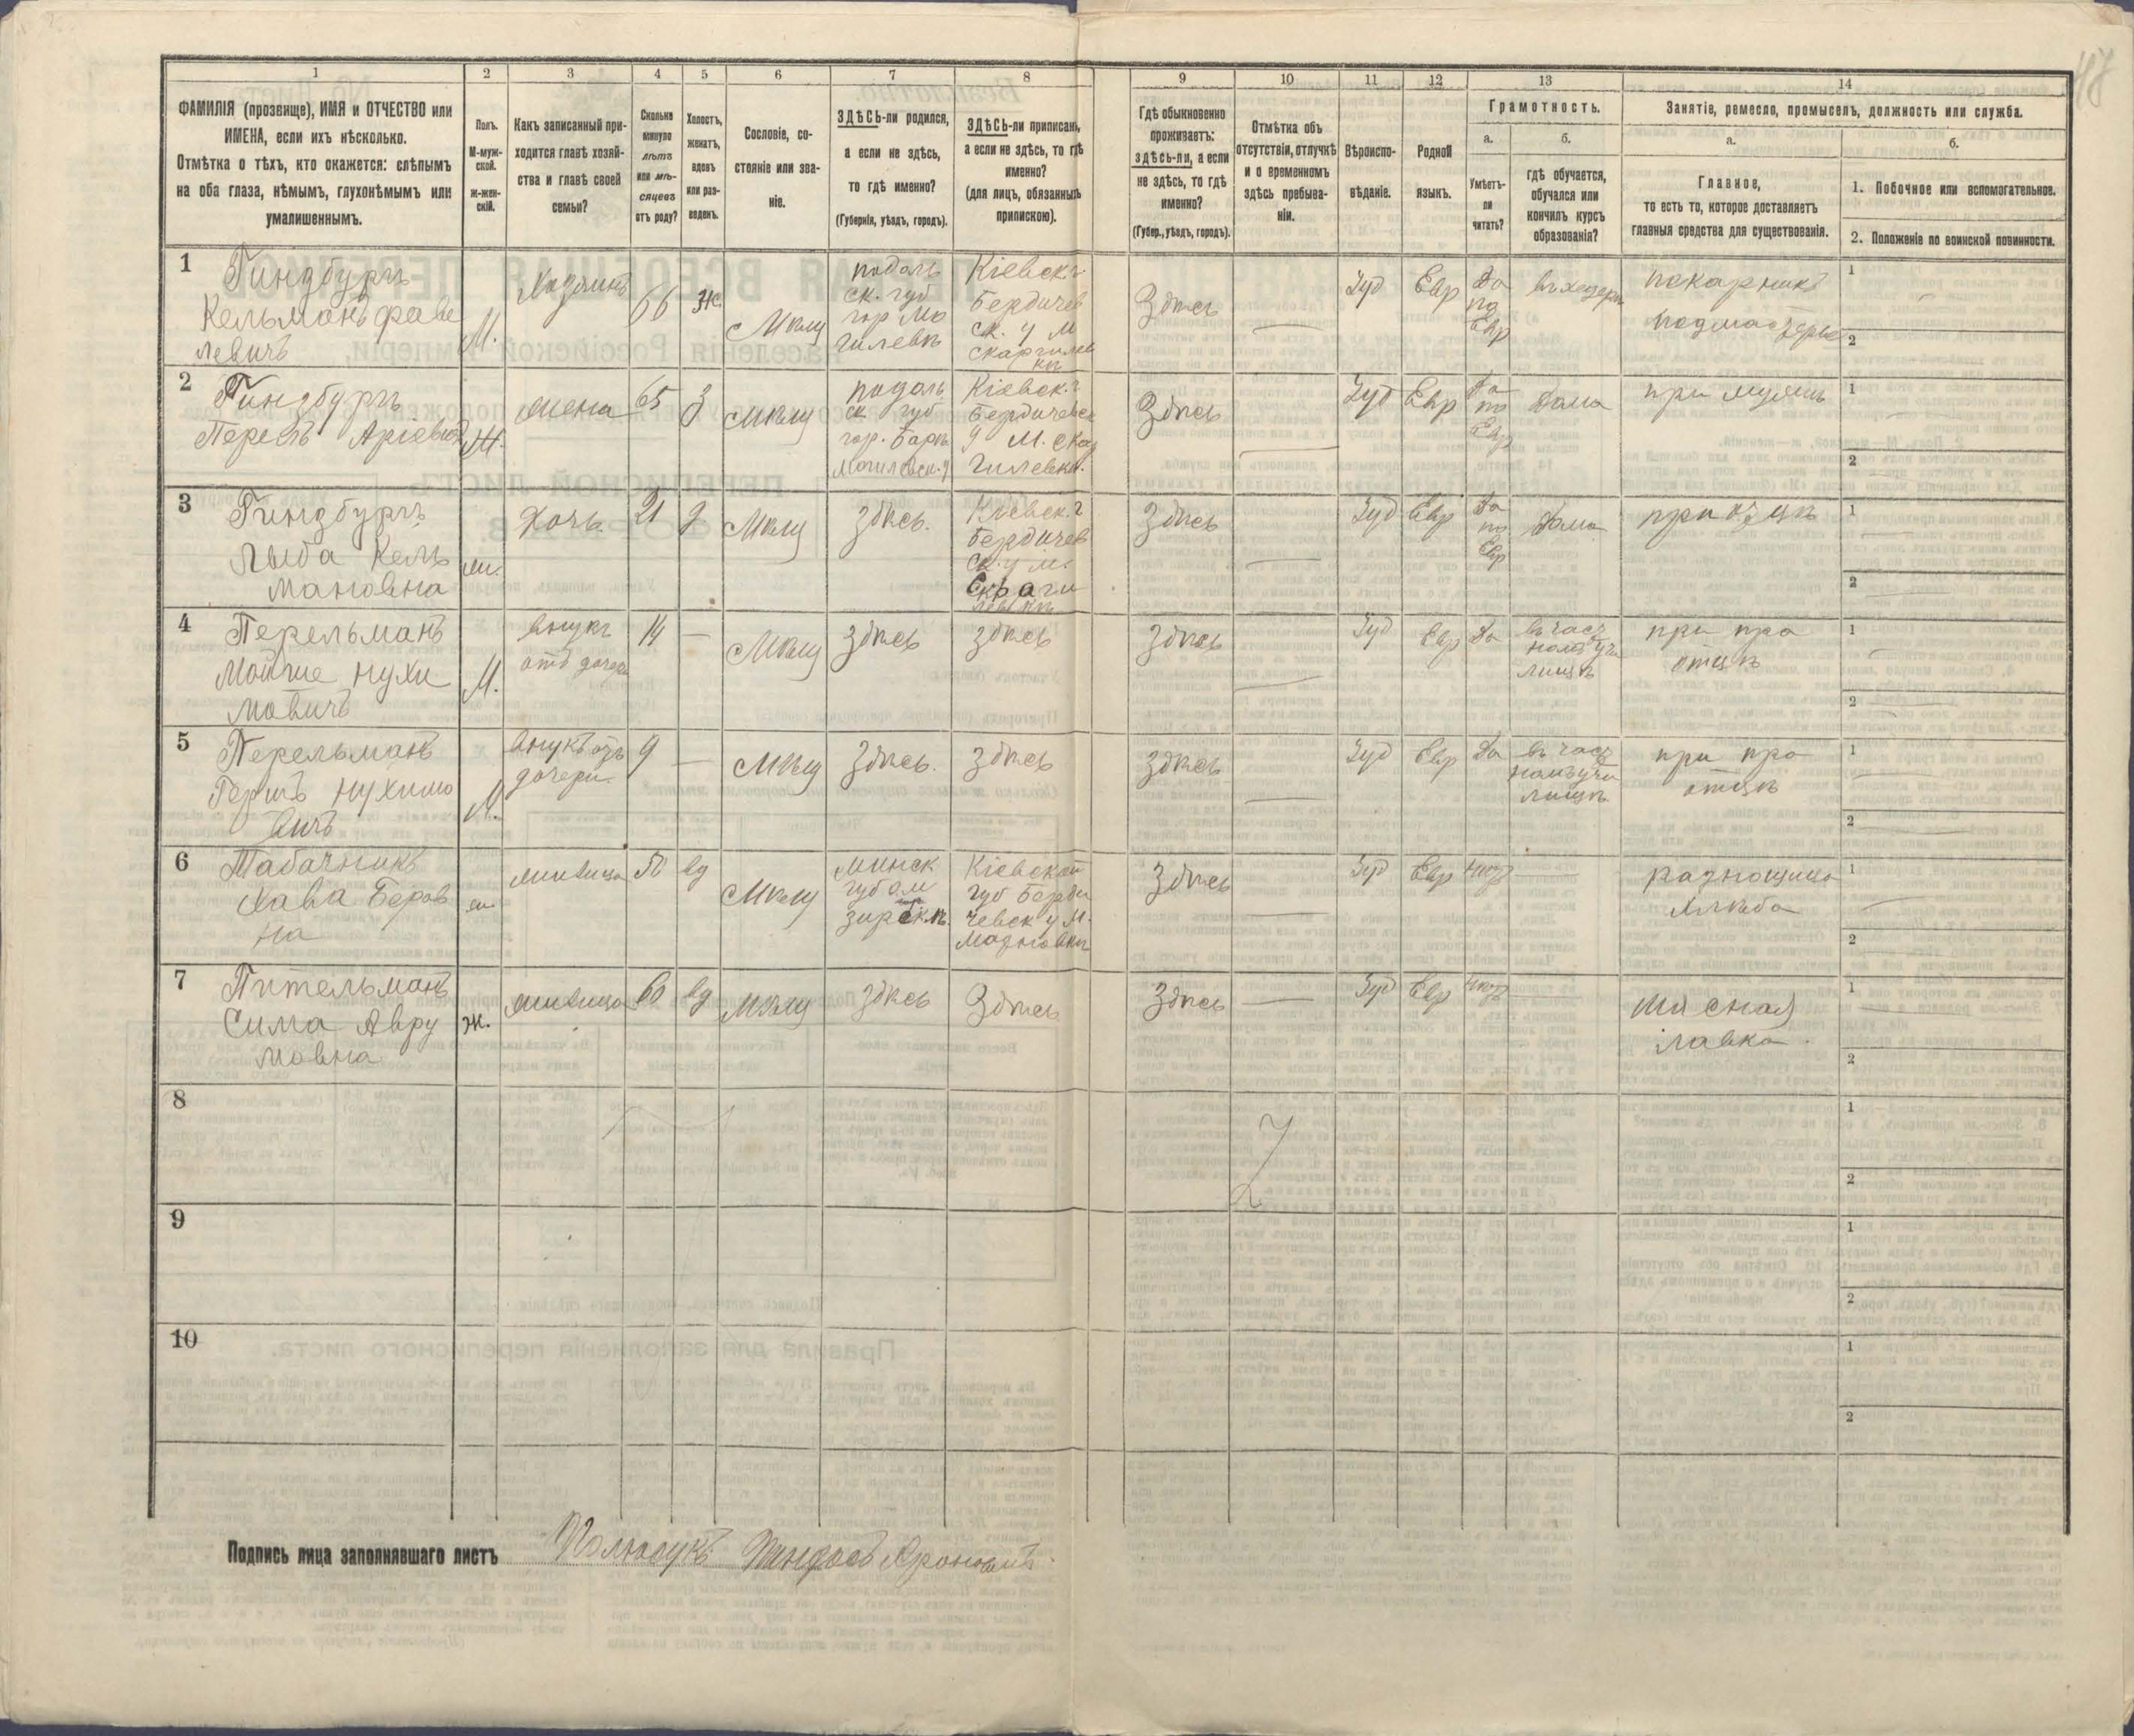 1
2
3
4
5
6
7
8
9
10
11
12
13
14
ФАМИЛІЯ (прозвище), ИМЯ и ОТЧЕСТВО или
ИМЕНА, если ихъ нѣсколько.
Отмѣтка о тѣхъ, кто окажется: слѣпымъ
на оба глаза, нѣмымъ, глухонѣмымъ или
умалишеннымъ.
Полъ.
М-муж-
ской.
ж-жен-
скій.
Какъ записанный при-
ходится главѣ хозяй-
ства и главѣ своей
семьи?
Сколько
минуло
лѣтъ
или мѣ-
сяцевъ
отъ роду?
Холостъ,
женатъ,
вдовъ
или раз-
веденъ.
Сословіе, со-
стояніе или зва-
ніе.
ЗДѢСЬ-ли родился,
а если не здѣсь,
то гдѣ именно?
(Губернія, уѣздъ, городъ).
ЗДѢСЬ-ли приписанъ,
а если не здѣсь, то гдѣ
именно?
(для лицъ, обязанныхъ
припискою).
Гдѣ обыкновенно
проживаетъ:
здѣсь-ли, а если
не здѣсь, то гдѣ
именно?
(Губер., уѣздъ, городъ).
Отмѣтка объ
отсутствіи, отлучкѣ
и о временномъ
здѣсь пребыва-
ніи.
Вѣроиспо-
вѣданіе.
Родной
языкъ.
Грамотность.
а.
Умѣетъ-
ли
читать?
б.
гдѣ обучается,
обучался или
кончилъ курсъ
образованія?
Занятіе, ремесло, промыселъ, должность или служба.
а.
Главное,
то есть то, которое доставляетъ
главныя средства для существованія.
б.
1. Побочное или вспомогательное.
2. Положеніе по воинской повинности.
1
Гинзбургъ
Кельманъ
левичъ
М.
Хозяинъ
66
Ж.
Мѣщ
подоль
ск. губ
гор Мо
гилевѣ
Кіевск г
Бердичев
ск. у М
Здѣсь
Іуд
Евр
Да
по
Евр
въ хедере
пекарникъ
подмастерье
1
2
2
Гинзбургъ
Ж.
жена
65
З
Мѣщ
подоль
ск губ
гор. Баръ
Могилевск. у
Кіевск. г
Бердичевск
у М. Ска
гилевки.
Здѣсь
Іуд
Евр
Да
по
Евр
Дома
при мужѣ
1
2
3
Гинзбургъ
Лыба Кель
мановна
ж.
Дочь
21
Д
Мѣщ
здѣсь.
Кіевск. г
Бердичев
ск. у М.
Здѣсь
Іуд
Евр
Да
по
Евр
Дома
при отцѣ
1
2
4
Перельманъ
Мойше Нухи
мовичъ
М.
внукъ
отъ дочери
14
Мѣщ
здѣсь
здѣсь
здѣсь
Іуд
Евр
Да
въ част
номъ учи
лищѣ
при пра
отцѣ
1
2
5
Перельманъ
Гершъ Нухимо
вичъ
М.
внукъ отъ
дочери
9
Мѣщ
здѣсь.
здѣсь
здѣсь
Іуд
Евр
Да
въ част
номъ учи
лищѣ
при пра
отцѣ
1
2
6
Табачникъ
Хава Беров
на
ж.
жилица
50
вд
Мѣщ
Минск
губ
Кіевской
губ Берди
чевск у М.
Махновки
Здѣсь
Іуд
Евр
разнощица
хлѣба
1
2
7
Пительманъ
Сима Авру
мовна
ж.
жилица
60
вд
Мѣщ
здѣсь
Здѣсь
Здѣсь
Іуд
Евр
мясная
лавка.
1
2
8
1
2
9
1
2
10
1
2
Подпись лица заполнявшаго листъ
Ароновичъ